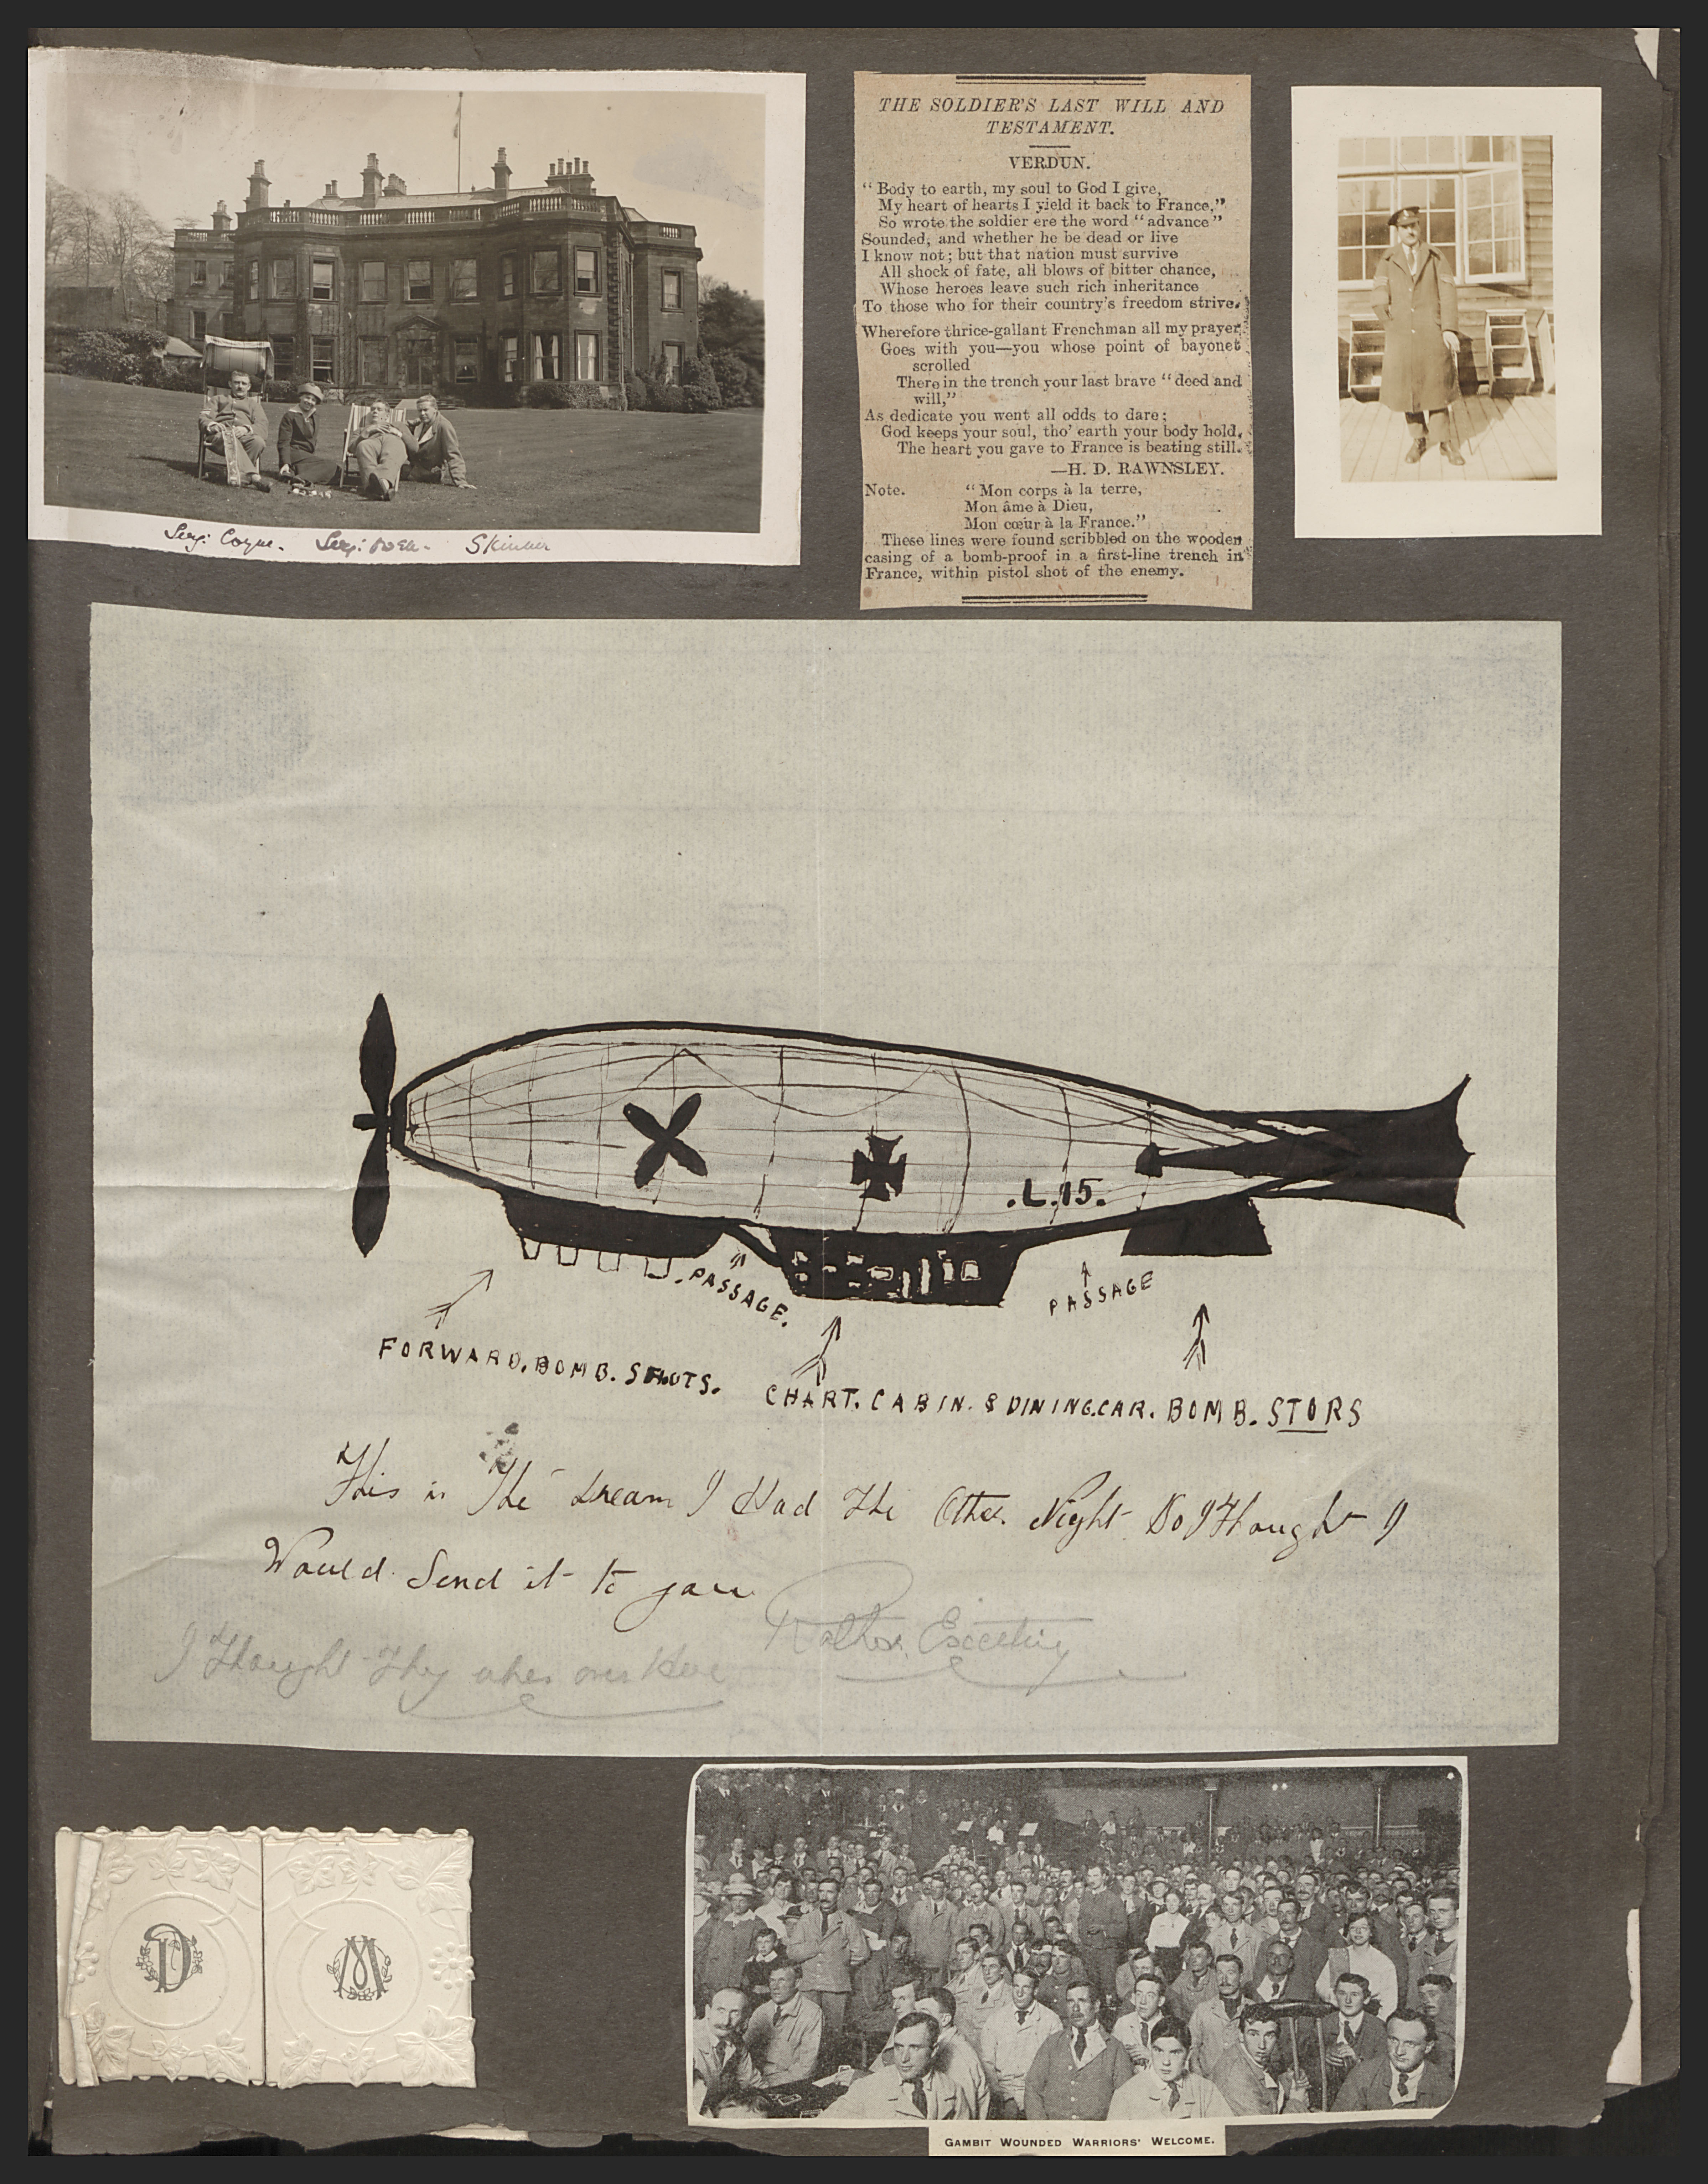 Sergt Coyne. Sergt Skinner
THE SOLDIER'S LAST WILL AND
TESTAMENT.
VERDUN.
“Body to earth, my soul to God I give,
My heart of hearts I yield it back to France,”
So wrote the soldier ere the word “advance”
Sounded, and whether he be dead or live
I know not; but that nation must survive
All shock of fate, all blows of bitter chance,
Whose heroes leave such rich inheritance
To those who for their country's freedom strive.
Wherefore thrice-gallant Frenchman all my prayer
Goes with you—you whose point of bayonet
scrolled
There in the trench your last brave “deed and
will,”
As dedicate you went all odds to dare;
God keeps your soul, tho' earth your body hold,
The heart you gave to France is beating still.
—H. D. RAWNSLEY.
Note. “Mon corps à la terre,
Mon âme à Dieu,
Mon cœur à la France.”
These lines were found scribbled on the wooden
casing of a bomb-proof in a first-line trench in
France, within pistol shot of the enemy.
.L.15.
.PASSAGE.
PASSAGE
FORWARD.BOMB.SHUTS.
CHART.CABIN.&DINING.CAR.
BOMB.STORS
This is The Dream I Had The Other Night So I Thought I
Would Send it to you
Rather Exciting
I Thought They were over Here
D M
GAMBIT WOUNDED WARRIORS' WELCOME.